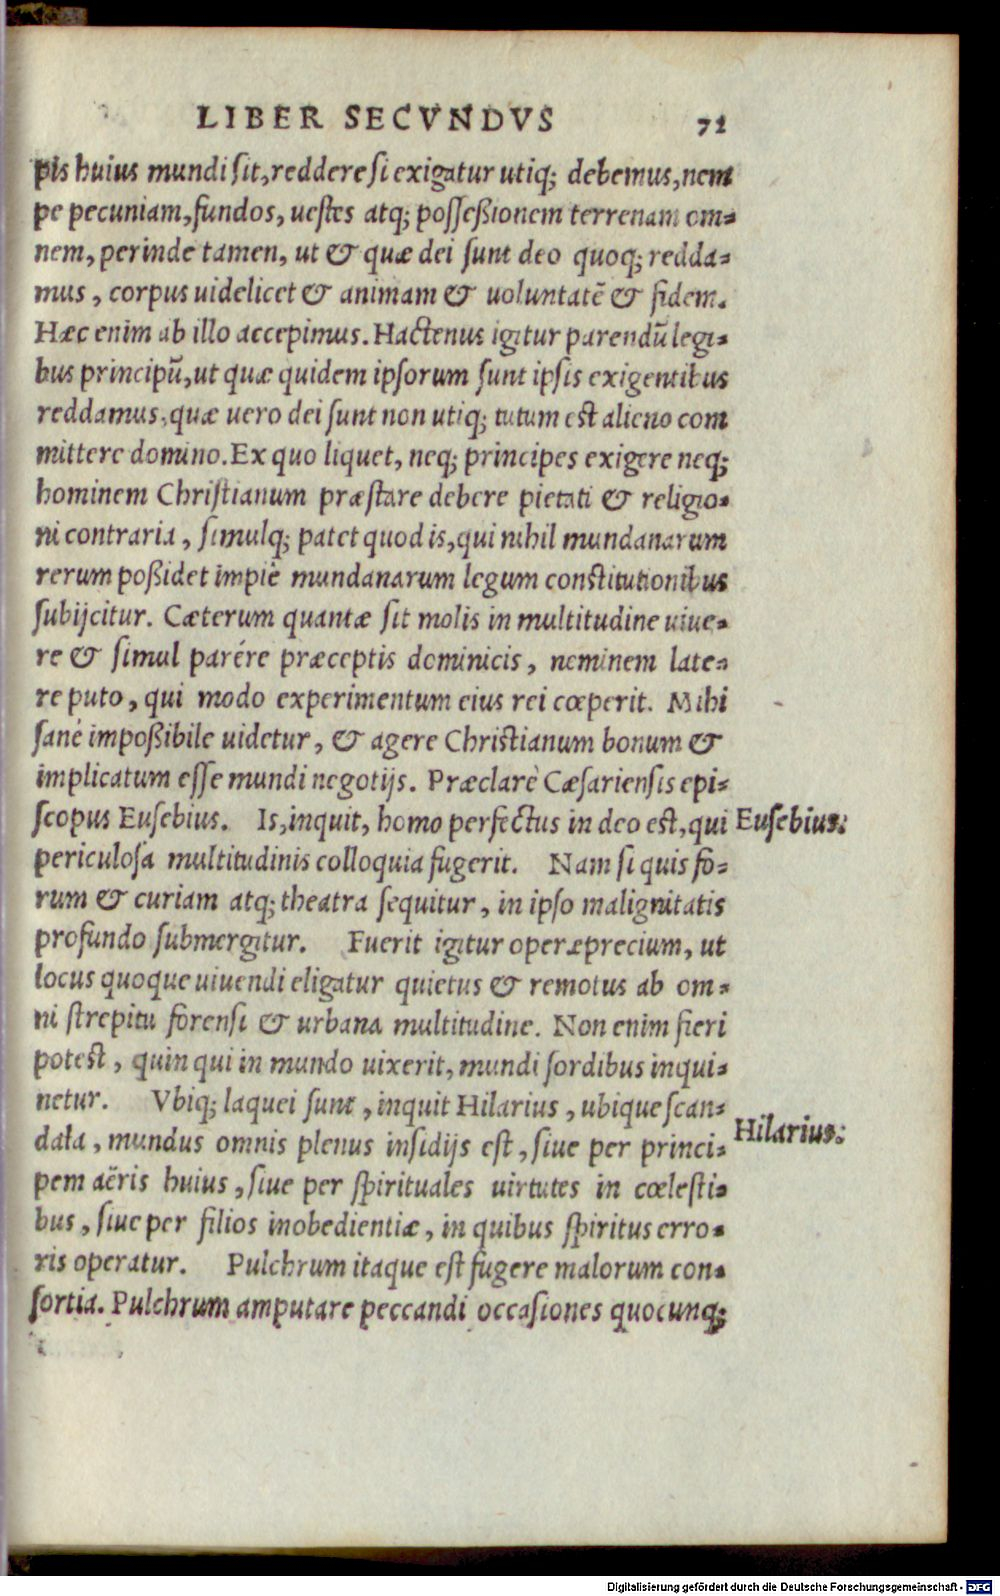 LIBER SECVNDVS 72
pis huius mundi sit, reddere si exigatur utiq; debemus, nem
pe pecuniam, fundos, uestes atq; posseßionem terrenam om-
nem, perinde tamen, ut & quæ dei sunt deo quoq; redda-
mus, corpus uidelicet & animam & uoluntatē & fidem.
Hæc enim ab illo accepimus. Hactenus igitur parendū legi-
bus principū, ut quæ quidem ipsorum sunt ipsis exigentibus
reddamus, quæ uero dei sunt non utiq; tutum est alieno com
mittere domino. Ex quo liquet, neq; principes exigere neq;
hominem Christianum præstare debere pietati & religio-
ni contraria, simulq; patet quod is, qui nihil mundanarum
rerum poßidet impiè mundanarum legum constitutionibus
subijcitur. Cæterum quantæ sit molis in multitudine uiue-
re & simul parére præceptis dominicis, neminem late-
re puto, qui modo experimentum eius rei cœperit. Mihi
sanè impoßibile uidetur, & agere Christianum bonum &
implicatum esse mundi negotijs. Præclarè Cæsariensis epi-
scopus Eusebius. Is, inquit, homo perfectus in deo est, qui
Eusebius.
periculosa multitudinis colloquia fugerit. Nam si quis fo-
rum & curiam atq; theatra sequitur, in ipso malignitatis
profundo submergitur. Fuerit igitur operæprecium, ut
locus quoque uiuendi eligatur quietus & remotus ab om-
ni strepitu forensi & urbana multitudine. Non enim fieri
potest, quin qui in mundo uixerit, mundi sordibus inqui-
netur. Vbiq; laquei sunt, inquit Hilarius, ubique scan-
Hilarius.
dala, mundus omnis plenus insidijs est, siue per princi-
pem aëris huius, siue per spirituales uirtutes in cœlesti-
bus, siue per filios inobedientiæ, in quibus spiritus erro-
ris operatur. Pulchrum itaque est fugere malorum con-
sortia. Pulchrum amputare peccandi occasiones quocunq;
Digitalisierung gefördert durch die Deutsche Forschungsgemeinschaft - DFG